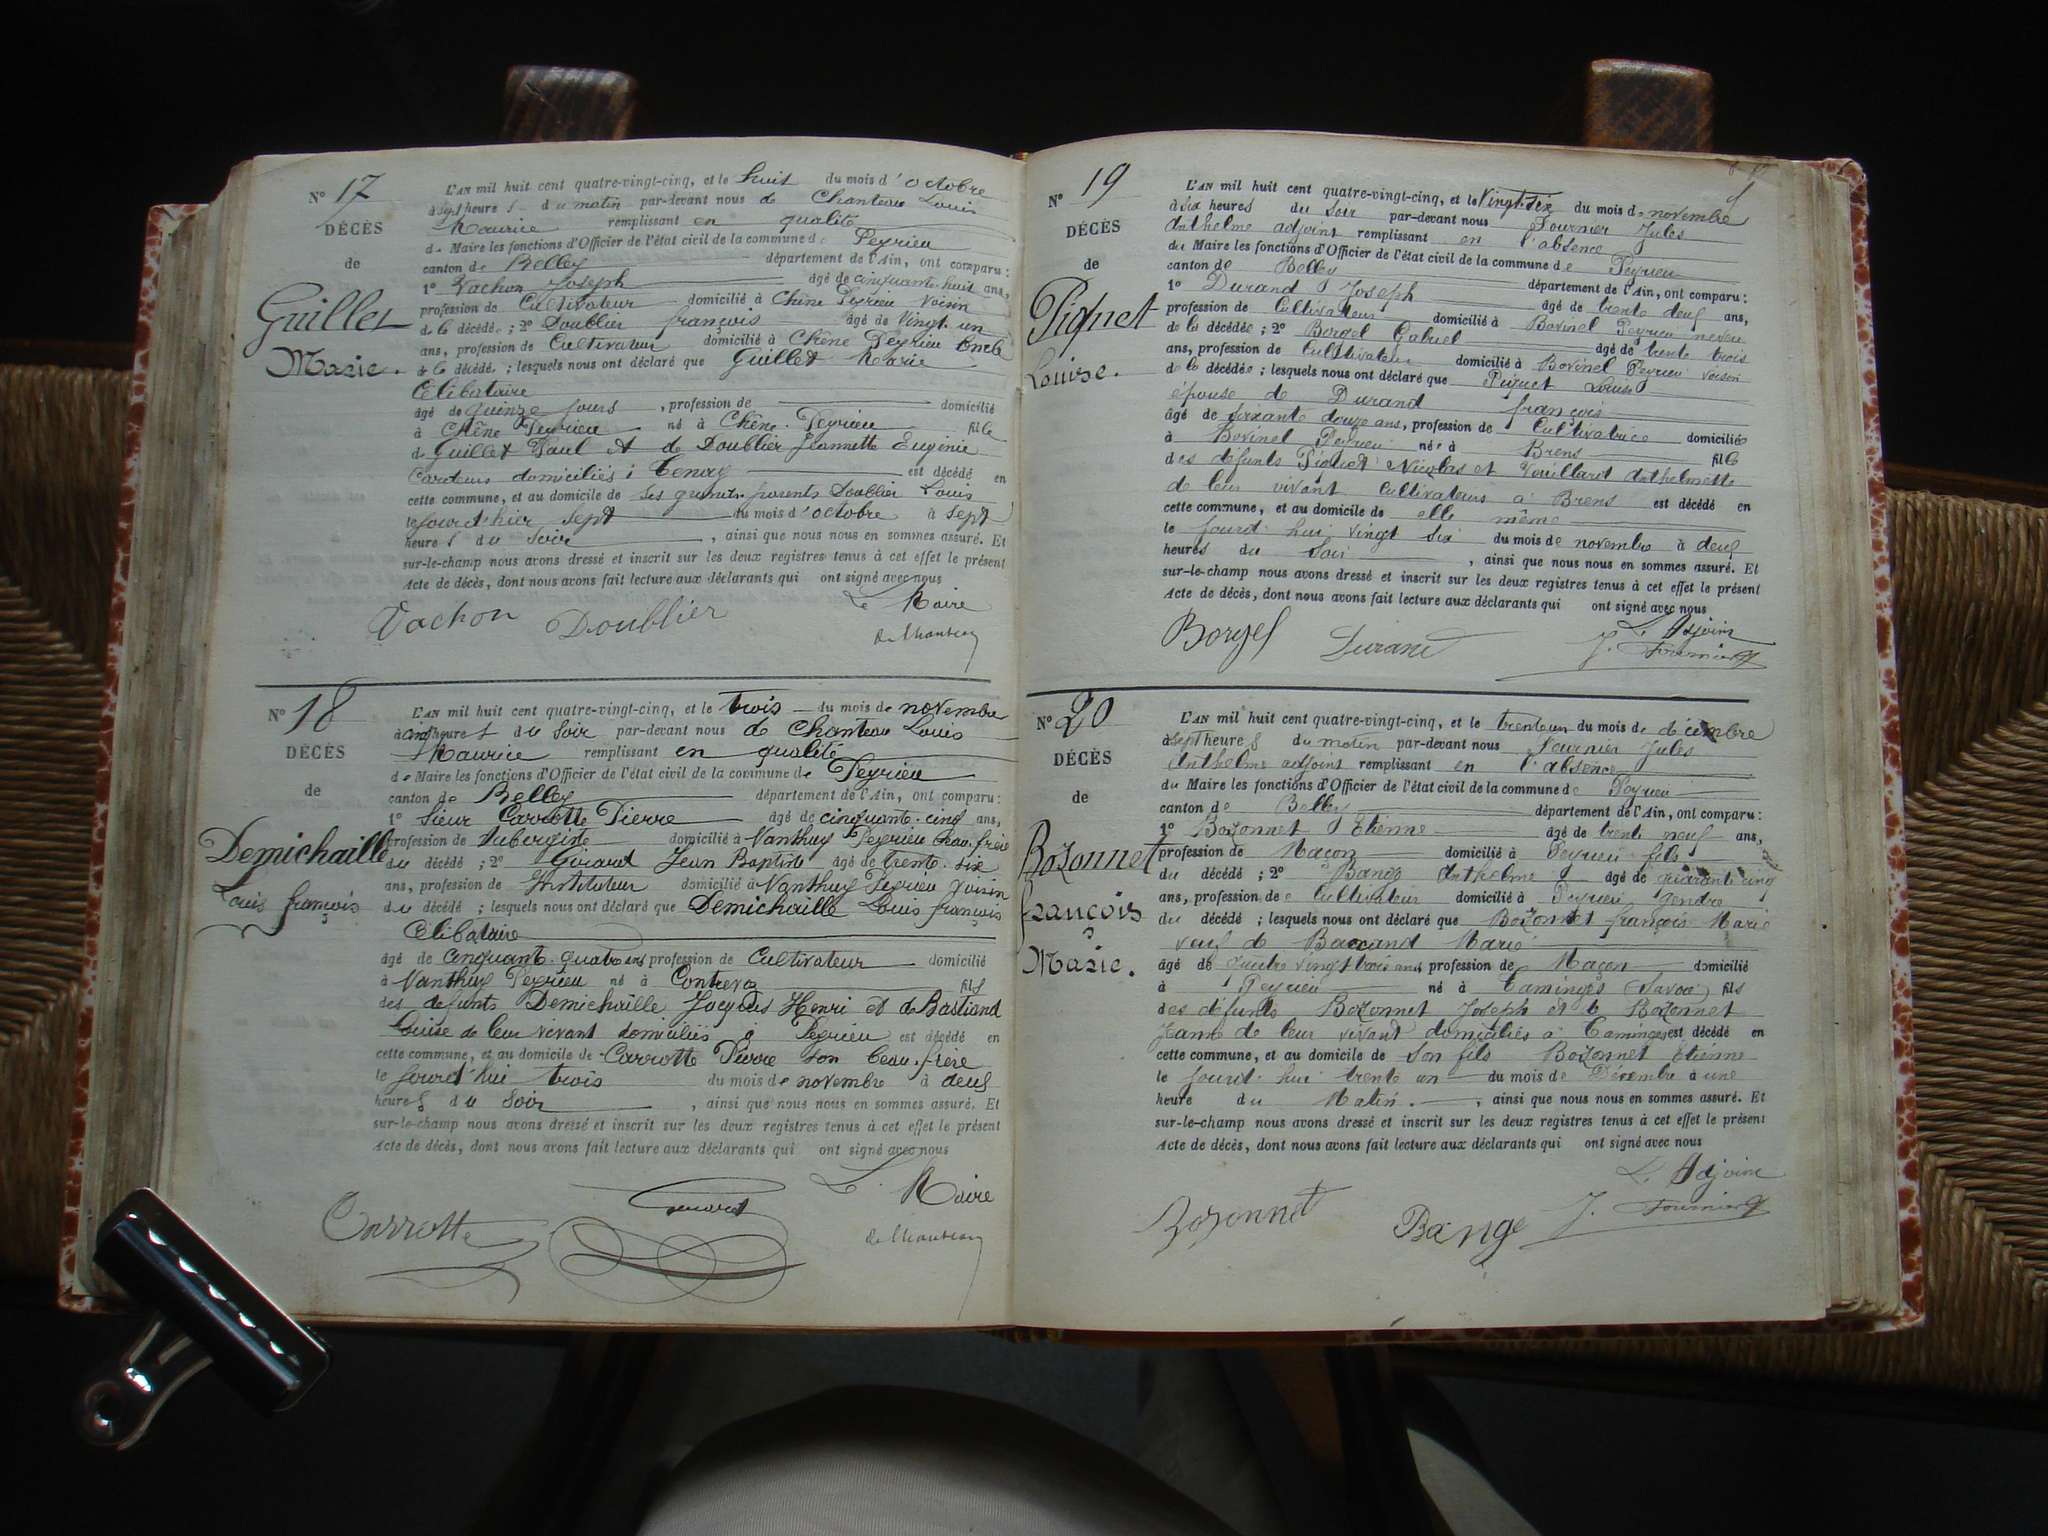 N° 17
DÉCÈS
de
Guillet
Marie.
L'AN mil huit cent quatre-vingt-cinq, et le huit du mois d'octobre
à sept heures du matin par-devant nous de Chanteau Louis
Maurice remplissant en qualité
de Maire les fonctions d'Officier de l'état civil de la commune de Peyrieu
canton de Belley département de l'Ain, ont comparu :
1° Vachon Joseph âgé de cinquante-huit ans,
profession de Cultivateur domicilié à Chêne Peyrieu voisin
de la décédée ; 2° Doublier françois âgé de Vingt un
ans, profession de Cultivateur domicilié à Chêne Peyrieu Oncle
de la décédé ; lesquels nous ont déclaré que Guillet Marie
Célibataire
âgé de quinze jours , profession de domicilié
à Chêne Peyrieu né à Chêne Peyrieu fille
de Guillet Paul et de Doublier Jeannette Eugénie
Cardeurs domiciliés à Tenay est décédé en
cette commune, et au domicile de ses grands parents Doublier Louis
le jourd'hier sept du mois d'octobre à sept
heures du soir , ainsi que nous nous en sommes assuré. Et
sur-le-champ nous avons dressé et inscrit sur les deux registres tenus à cet effet le présent
Acte de décès, dont nous avons fait lecture aux déclarants qui ont signé avec nous
Le Maire
Vachon Doublier
de Chanteau
N° 18
DÉCÈS
de
Demichaille
Louis françois
L'AN mil huit cent quatre-vingt-cinq, et le trois du mois de novembre
à cinq heures du soir par-devant nous de Chanteau Louis
Maurice remplissant en qualité
de Maire les fonctions d'Officier de l'état civil de la commune de Peyrieu
canton de Belley département de l'Ain, ont comparu :
1° Sieur Carrotte Pierre âgé de cinquante-cinq ans,
profession de Aubergiste domicilié à Nanthuy Peyrieu beau-frère
du décédé ; 2° Girard Jean Baptiste âgé de trente-six
ans, profession de Instituteur domicilié à Nanthuy Peyrieu voisin
du décédé ; lesquels nous ont déclaré que Demichaille Louis françois
Célibataire
âgé de cinquante-quatre ans profession de Cultivateur domicilié
à Nanthuy Peyrieu né à Contrevoz fils
des défunts Demichaille Jacques Henri et de Bastiand
Louise de leur vivant domiciliés à Peyrieu est décédé en
cette commune, et au domicile de Carrotte Pierre son beau-frère
le jourd'hui trois du mois de novembre à deux
heures du soir , ainsi que nous nous en sommes assuré. Et
sur-le-champ nous avons dressé et inscrit sur les deux registres tenus à cet effet le présent
Acte de décès, dont nous avons fait lecture aux déclarants qui ont signé avec nous
Le Maire
Carrotte Girard
de Chanteau
N° 19
DÉCÈS
de
Piguet
Louise.
L'AN mil huit cent quatre-vingt-cinq, et le Vingt-six du mois de novembre
à six heures du soir par-devant nous Fournier Jules
Anthelme adjoint remplissant en l'absence
du Maire les fonctions d'Officier de l'état civil de la commune de Peyrieu
canton de Belley département de l'Ain, ont comparu :
1° Durand Joseph âgé de trente deux ans,
profession de Cultivateur domicilié à Bovinel Peyrieu neveu
de la décédée ; 2° Borgel Gabriel âgé de trente trois
ans, profession de Cultivateur domicilié à Bovinel Peyrieu voisin
de la décédée ; lesquels nous ont déclaré que Piguet Louise
épouse de Durand françois
âgé de soixante douze ans, profession de Cultivatrice domiciliée
à Bovinel Peyrieu née à Brens fille
des défunts Piguet Nicolas et Vuillard Anthelmette
de leur vivant Cultivateurs à Brens est décédé en
cette commune, et au domicile de elle même
le jourd'hui vingt six du mois de novembre à deux
heures du soir , ainsi que nous nous en sommes assuré. Et
sur-le-champ nous avons dressé et inscrit sur les deux registres tenus à cet effet le présent
Acte de décès, dont nous avons fait lecture aux déclarants qui ont signé avec nous
L'Adjoint
Borgel Durand J. Fournier
N° 20
DÉCÈS
de
Bozonnet
françois
Marie.
L'AN mil huit cent quatre-vingt-cinq, et le trente un du mois de décembre
à sept heures du matin par-devant nous Fournier Jules
Anthelme adjoint remplissant en l'absence
du Maire les fonctions d'Officier de l'état civil de la commune de Peyrieu
canton de Belley département de l'Ain, ont comparu :
1° Bozonnet Etienne âgé de trente neuf ans,
profession de Maçon domicilié à Peyrieu fils
du décédé ; 2° Bange Anthelme âgé de quarante cinq
ans, profession de Cultivateur domicilié à Peyrieu gendre
du décédé ; lesquels nous ont déclaré que Bozonnet françois Marie
veuf de Marie
âgé de quatre vingt trois ans, profession de Maçon domicilié
à Peyrieu né à Taminges (Savoie) fils
des défunts Bozonnet Joseph et de Bozonnet
Jeanne de leur vivant domiciliés à Taminges est décédé en
cette commune, et au domicile de son fils Bozonnet Etienne
le jourd'hui trente un du mois de Décembre à une
heure du Matin. , ainsi que nous nous en sommes assuré. Et
sur-le-champ nous avons dressé et inscrit sur les deux registres tenus à cet effet le présent
Acte de décès, dont nous avons fait lecture aux déclarants qui ont signé avec nous
L'Adjoint
Bozonnet Bange J. Fournier